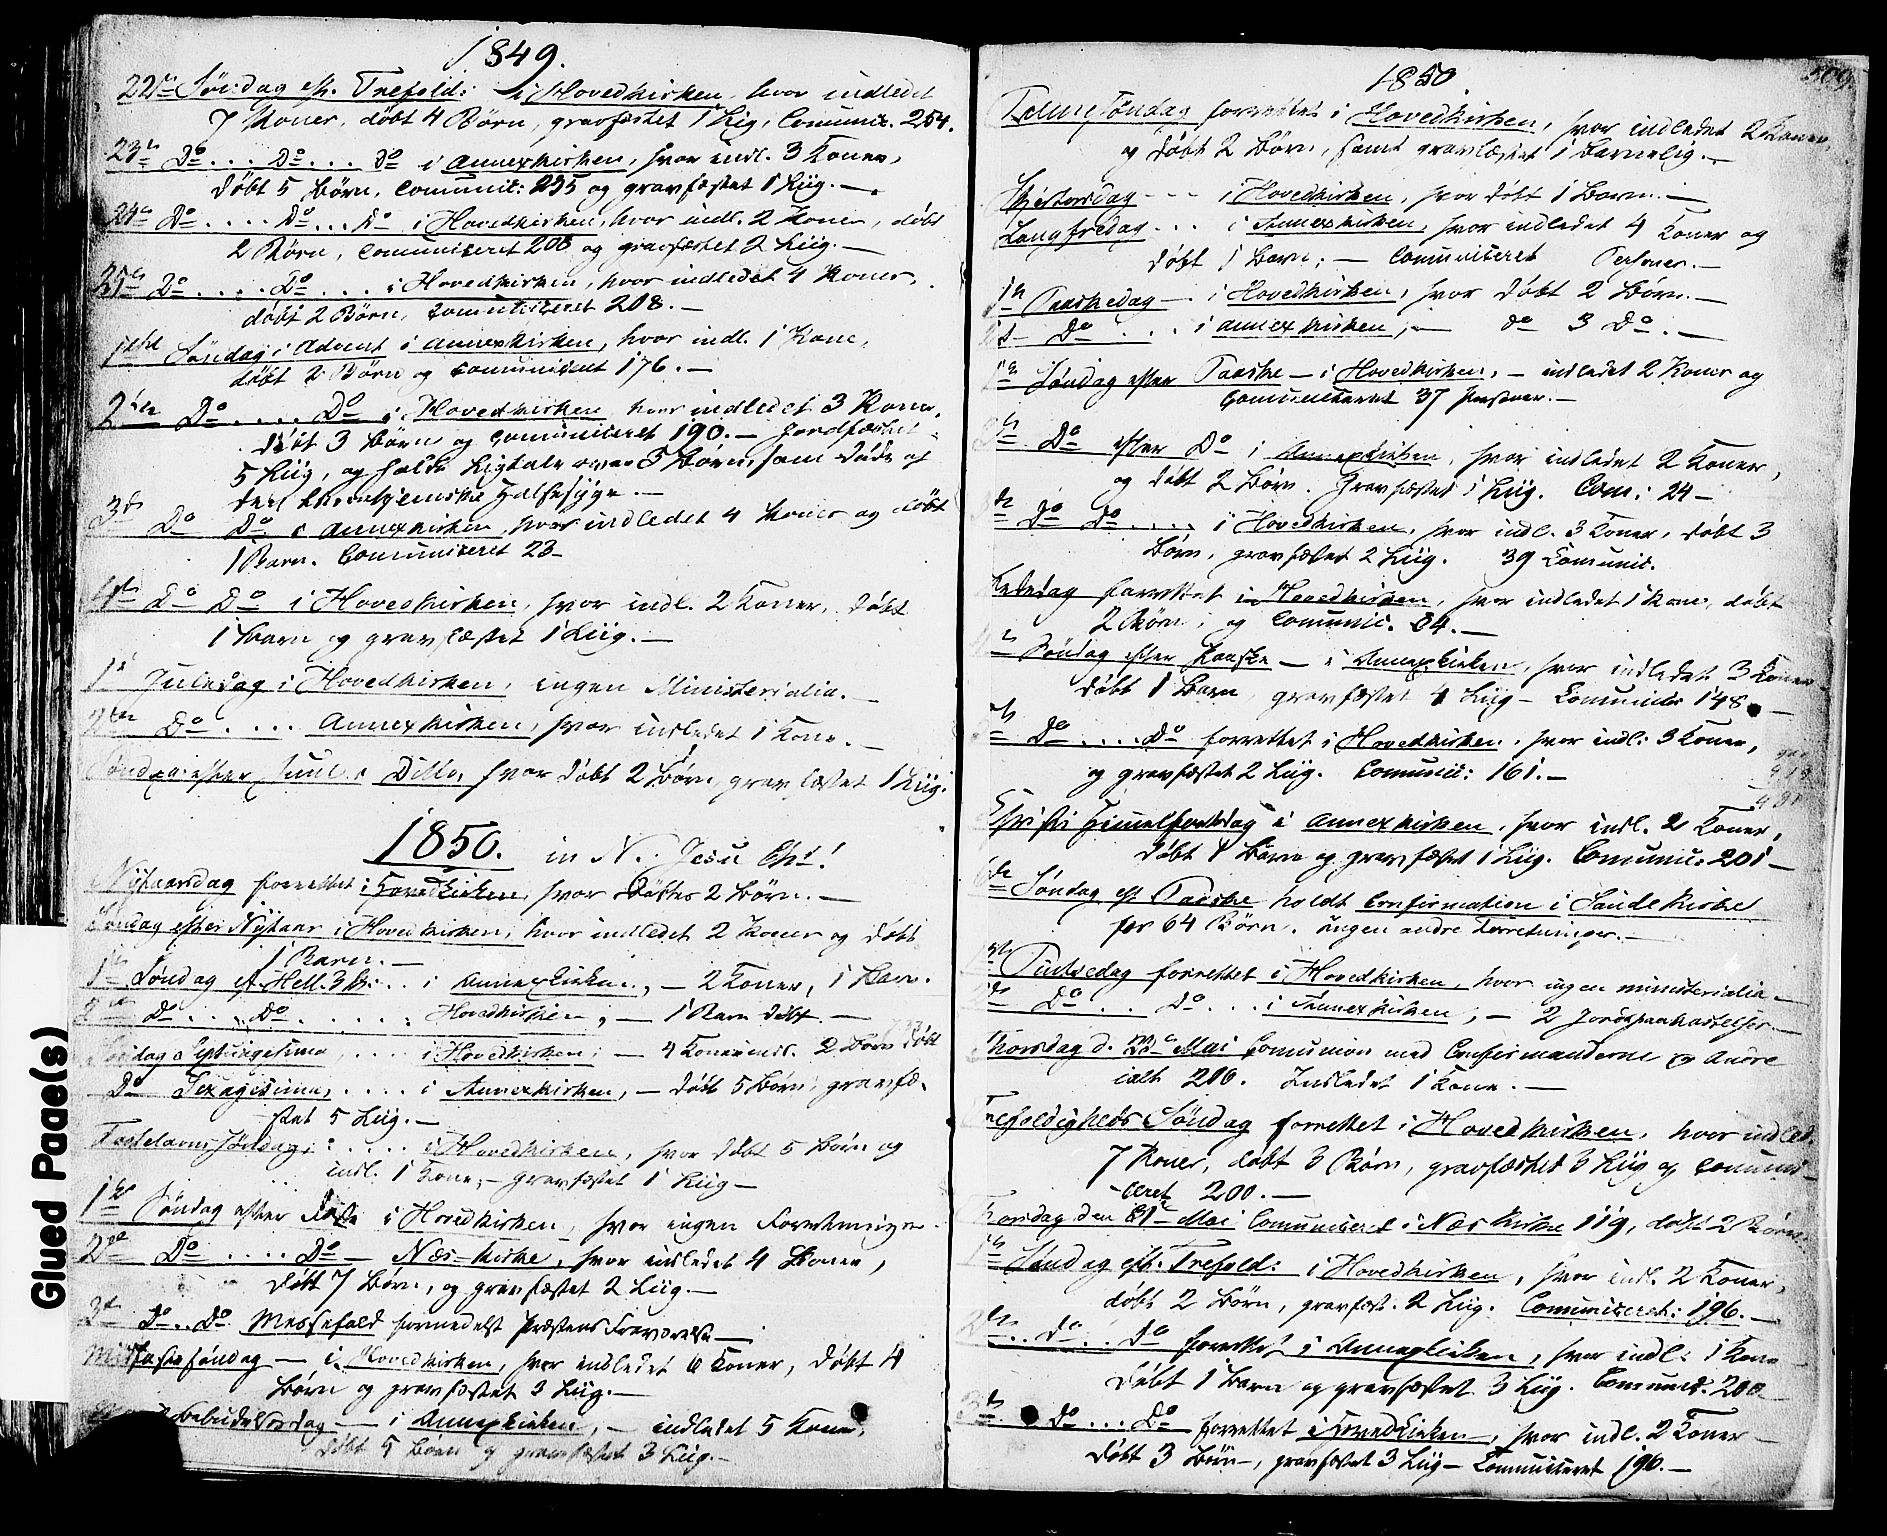 1849.
22de Søndag eft. Trefold: i Hovedkirken, hvor indledet
7 Koner, døbt 4 Børn, gravfæstet 1 Liig, Comunic. 254.
23de Do... Do... Do i Annexkirken, hvor indl. 3 Koner,
døbt 5 Børn, Comunic: 255 og gravfæstet 1 Liig.—
24de Do.... Do... Do i Hovedkirken, hvor indl. 2 Koner, døbt
2 Børn, Comuniceret 208 og gravfæstet 2 Liig.—
25de Do..... Do.... i Hovedkirken, hvor indledet 4 Koner,
døbt 2 Børn, Comuniceret 208.—
Søndag i Advent i Annexkirken, hvor indl. 1 Kone,
døbt 2 Børn og Comuniceret 176.—
2den Do.... Do i Hovedkirken hvor indledet 3 Koner,
døbt 3 Børn og Comuniceret 190.— Jordfæstet
5 Liig, og holdt Ligtale over 3 Børn, som døde af
den Halsesyge.—
3die Do Do i Annexkirken, hvor indledet 4 Koner og døbt
1 Barn. Comuniceret 23—
4de Do Do i Hovedkirken, hvor indl. 2 Koner, døbt
1 Barn og gravfæstet 1 Liig.—
1ste Juledag i Hovedkirken, ingen Ministerialia.—
2den Do.... Annexkirken, hvor indledet 1 Kone.—
Søndag efter Juul i Ditto, hvor døbt 2 Børn, gravfæstet 1 Liig.
1850. in N. Jesu Cht!
Nytaarsdag forrettet i Hovedkirken, hvor døbtes 2 Børn.—
Søndag efter Nytaar i Hovedkirken, hvor indledet 2 Koner og døbt
1 Barn.—
1ste Søndag ef. Hell. 3 K:.. i Annexkirken,— 2 Koner, 1 Barn.
Do.... Do...... Hovedkirken,— 1 Barn døbt.—
Søndag Septuagesima,.... i Hovedkirken;— 4 Koner indl. 2 Børn døbt
Do Sexagesima,.... i Annexkirken,— døbt 5 Børn, gravfæ-
stet 5 Liig.—
Fastelavns Søndag:..... i Hovedkirken, hvor døbt 5 Børn og
indl. 1 Kone,— gravfæstet 1 Liig—
1ste Søndag efter Faste i Hovedkirken, hvor ingen Forretninger.
2den Do.... Do— Næs-kirke, hvor indledet 4 Koner,
døbt 7 Børn, og gravfæstet 2 Liig.—
3die Do.. Do Messefald formedelst Præstens Fraværelse—
Midfastesøndag— i Hovedkirken, hvor indledet 6 Koner, døbt 4
Børn og gravfæstet 3 Liig.—
Bebudelsesdag— i Annexkirken,— indledet 5 Koner,
døbt 5 Børn og gravfæstet 3 Liig.—
1850
509.
Palmesøndag forrettet i Hovedkirken, hvor indledet 2 Koner,
og døbt 2 Børn, samt gravfæstet 1 Barnelig.—
Skjertorsdag --- i Hovedkirken, hvor døbt 1 Barn.—
Langfredag... i Annexkirken, hvor indledet 4 Koner og
døbt 1 Barn;— Comuniceret Personer.—
1ste Paaskedag— i Hovedkirken, hvor døbt 2 Børn.—
Do... i Annexkirken,— do 3 Do.—
Søndag efter Paaske— i Hovedkirken,— indledet 2 Koner og
Comuniceret 37 Personer.—
Do efter Do i Annexkirken, hvor indledet 2 Koner,
og døbt 2 Børn. Gravfæstet 1 Liig. Com: 24—
Do Do.... i Hovedkirken, hvor indl. 3 Koner, døbt 3
Børn, gravfæstet 2 Liig. 39 Comunic.
Bededag forrettet i Hovedkirken, hvor indledet 1 Kone, døbt
2 Børn, og Comunic. 84.—
Søndag efter Paaske— i Annexkirken, hvor indledet 3 Koner
døbt 1 Barn, gravfæstet 4 Liig— Comunicer 148.—
Do.... Do forrettet i Hovedkirken, hvor indl: 3 Koner,
og gravfæstet 2 Liig. Comunic: 161.—
Christi Himmelfartsdag i Annexkirken, hvor indl. 2 Koner,
døbt 1 Barn og gravfæstet 1 Liig. Comunic. 201—
6te Søndag eft Paaske holdt Confirmation i Sande Kirke
for 64 Børn. Ingen andre Forretninger.—
Pintsedag forrettet i Hovedkirken, hvor ingen ministerialia—
Do.. Do... i Annexkirken;— 2 Jordpaakastelser—
Thorsdag d. 23de Mai Comunion med Confirmanderne og Andre
ialt 210. Indledet 1 Kone.—
Trefoldigheds Søndag forrettet i Hovedkirken, hvor indled.
7 Koner, døbt 3 Børn, gravfæstet 3 Liig og Comuni-
ceret 200.—
Torsdag den Mai Comuniceret i Næs Kirke 119, døbt 2 Børn.
1ste Søndag eft. Trefold: i Hovedkirken, hvor indl. 2 Koner,
døbt 2 Børn, gravfæst. 2 Liig. Comuniceret: 196.—
2den.. Do.. Do forrettet i Annexkirken, hvor indl: 1 Kone
døbt 1 Barn og gravfæstet 3 Liig. Comunic. 200
3die Do... Do forrettet i Hovedkirken, hvor indl. 2 Koner—
døbt 3 Børn—, gravfæstet 3 Liig— Comuniceret 196.—
Glued Page(s)